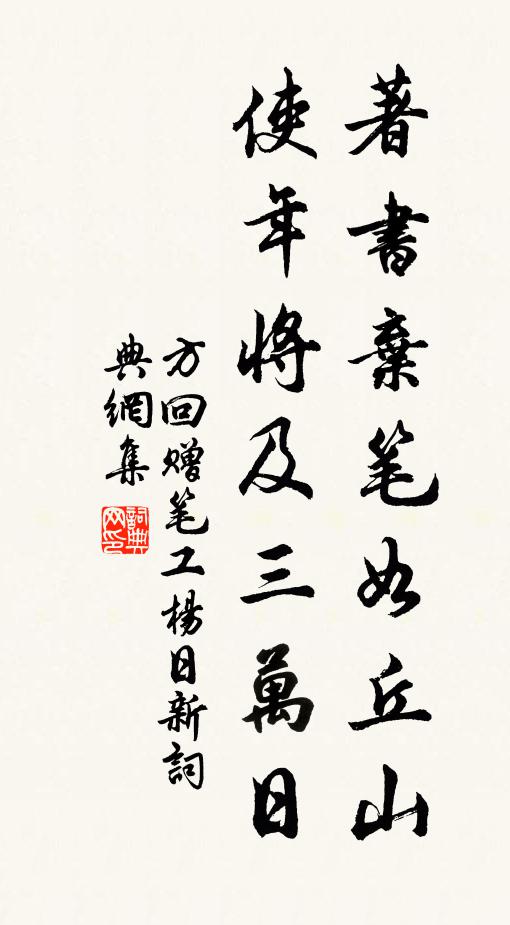 著書棄笔如丘山
使年將及三萬日
方回赠笔工楊日新詞
典網集
詞典网印